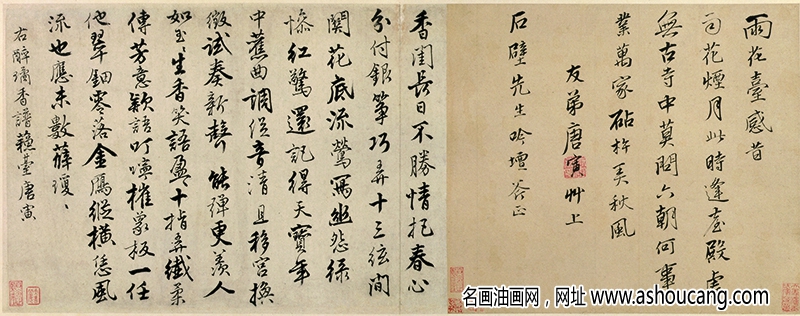 雨花臺感昔
司花煙月此時逢臺殿虛
無古寺中莫問六朝何事
業萬家砧杵秋風
友弟唐寅艸上
石壁先生吟壇正
香閨長日不勝情把春心
分付銀箏巧弄十三弦間
關花底流鶯寫幽怨綠
慘紅驚還記得天寶年
中曲調從音清且移宮換
徵試奏新聲能彈更羨人
如玉生香笑語盈十指弄纖柔
傳芳意語叮嚀板一任
他翠鈿零落金雁縱橫恁風
流也應未數薛瓊
右醉香譜蘇臺唐寅
名画油画网，网址 www.ashoucang.com